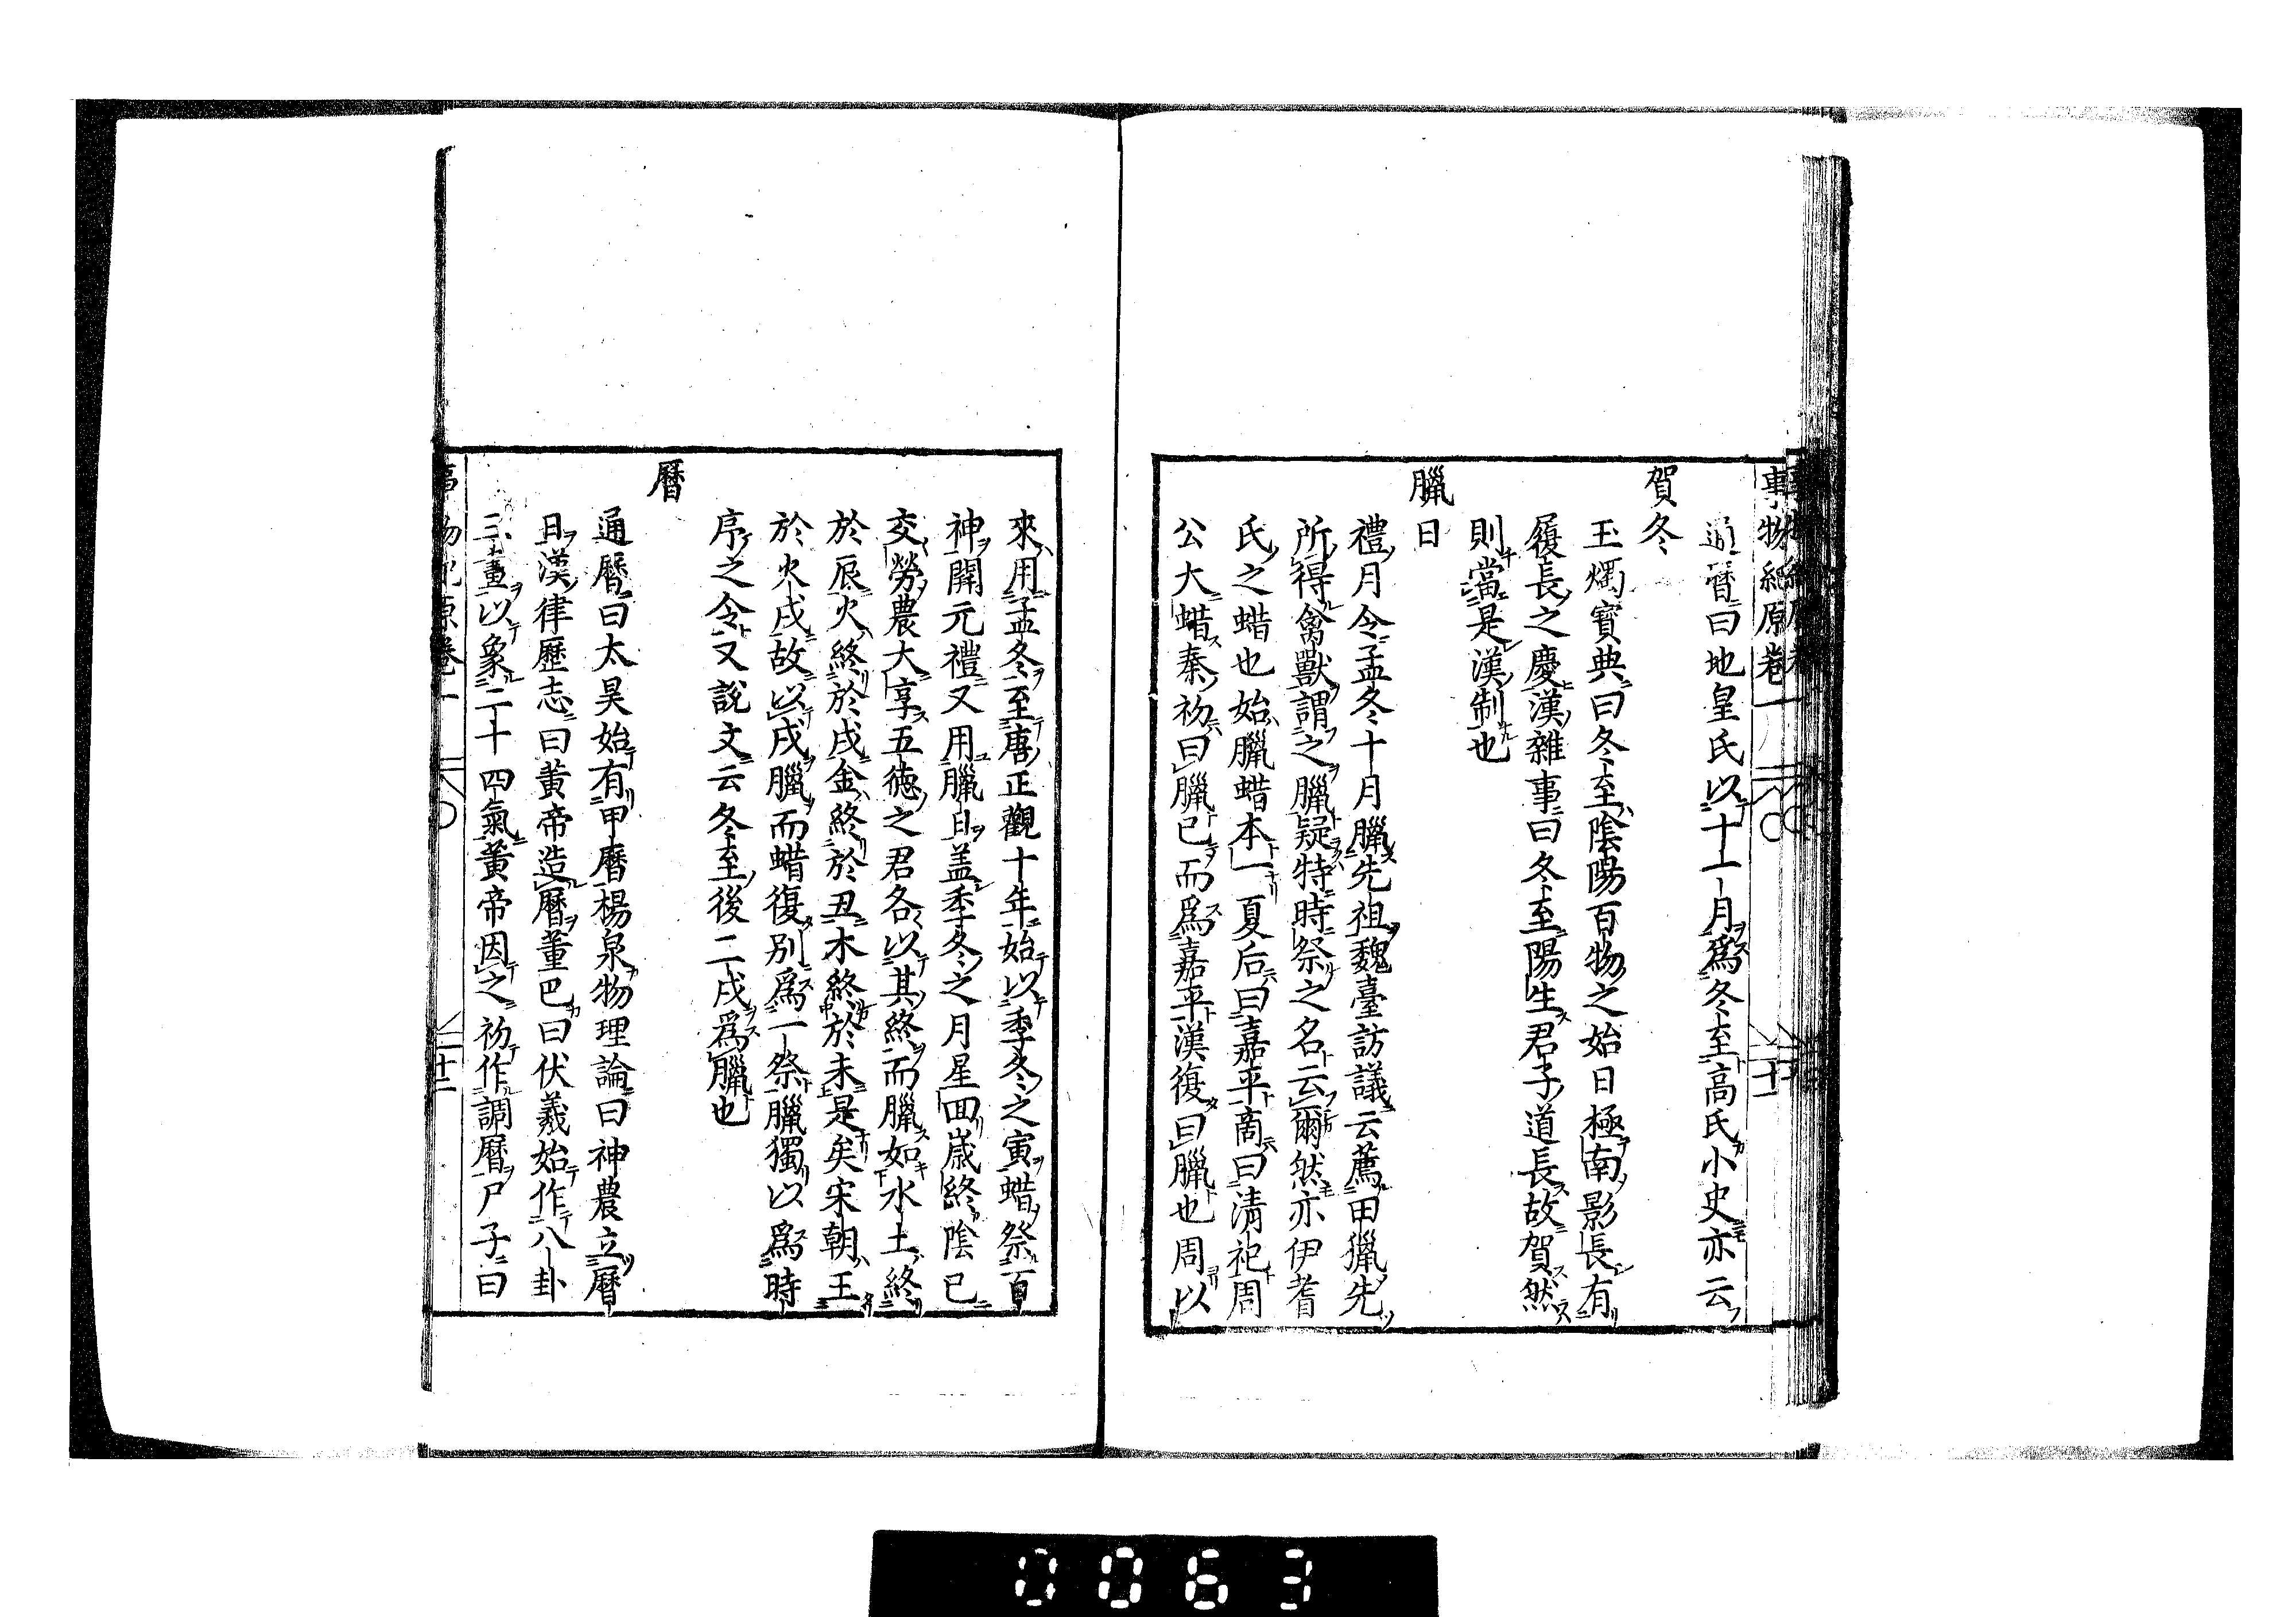 事物紀原卷一
十一
通曆曰地皇氏以十一月爲冬至高氏小史亦云
賀冬
玉燭寶典曰冬至陰陽百物之始日極南影長有
履長之慶漢雜事曰冬至陽生君子道長故賀然
則當是漢制也
臘日
禮月令孟冬十月臘先祖魏臺訪議云薦田獵先
所得禽獸謂之臘疑特時祭之名云爾然亦伊耆
氏之蜡也始臘蜡本一夏后曰嘉平商曰清祀周
公大蜡秦初曰臘已而爲嘉平漢復曰臘也周以
來用孟冬至唐正觀十年始以季冬之寅蜡祭百
神開元禮又用臘日盖季冬之月星回歲終陰已
交勞農大享五德之君各以其終而臘如水土終
於辰火終於戌金終於丑木終於未是矣宋朝王
於火戌故以戌臘而蜡復別爲一祭臘獨以爲時
序之令又說文云冬至後二戌爲臘也
曆
通曆曰太昊始有甲曆楊泉物理論曰神農立曆
日漢律歷志曰黃帝造曆董巴曰伏羲始作八卦
三畫以象二十四氣黃帝因之初作調曆尸子曰
事物紀原卷一
十二
0063